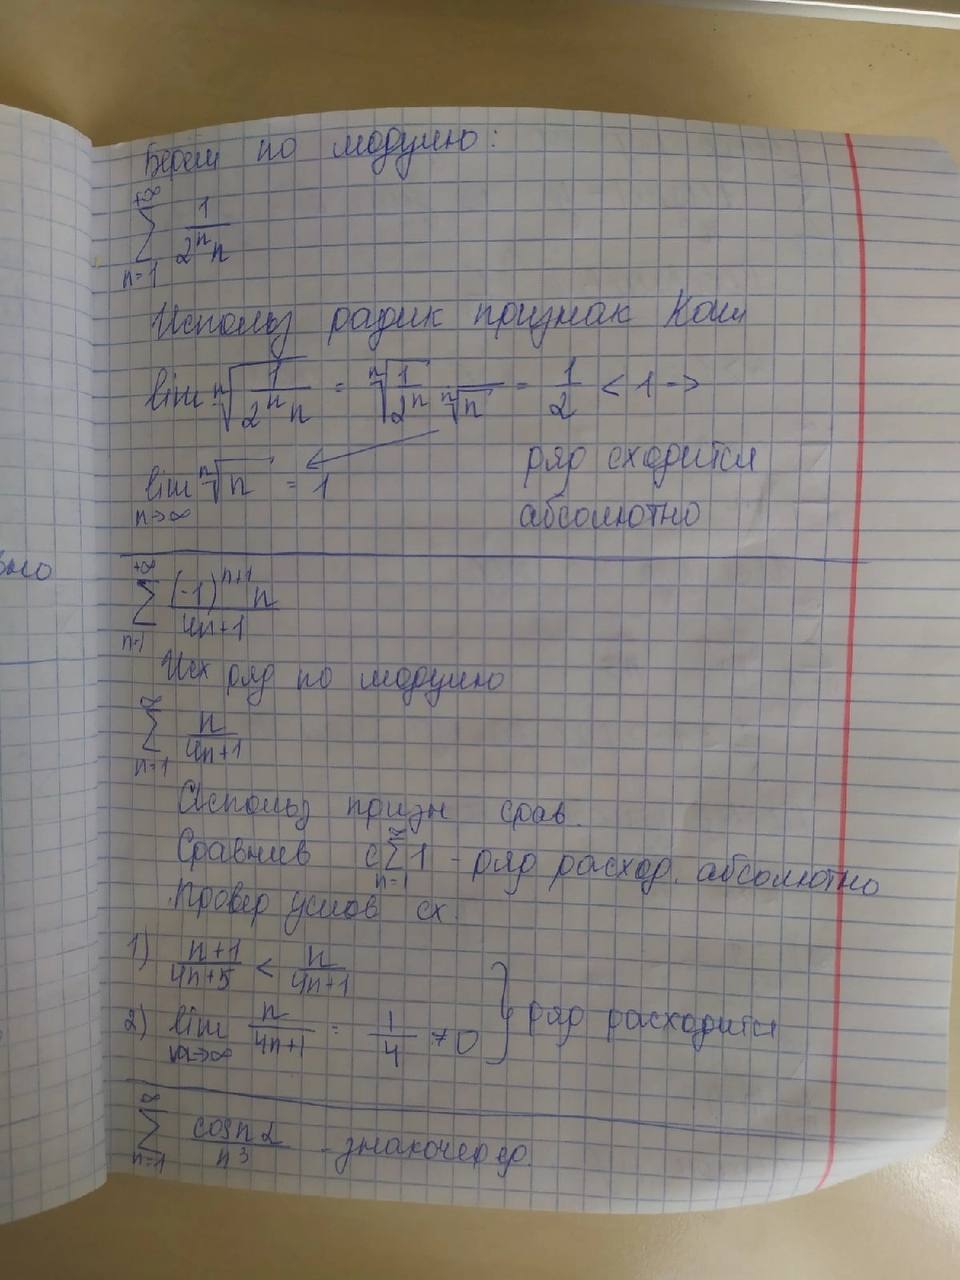 Берем по модулю:
+∞
∑ 1/(2ⁿn)
n=1
Использ радик признак Коши
lim ⁿ√(1/(2ⁿn)) = ⁿ√(1/2ⁿ) ⁿ√n = 1/2 < 1 →
ряд сходится
lim ⁿ√n = 1
n→∞
абсолютно
вно
+∞
∑ (-1)ⁿ⁺¹n/(4n+1)
n=1
Исх ряд по модулю
∞
∑ n/(4n+1)
n=1
Использ призн срав.
Сравнив с ∑ 1 - ряд расход. абсолютно
n=1
Провер услов сх.
1) (n+1)/(4n+5) < n/(4n+1)
2) lim n/(4n+1) = 1/4 ≠ 0 } ряд расходится
n→∞
∞
∑ cosnα/n³ - знакочеред.
n=1